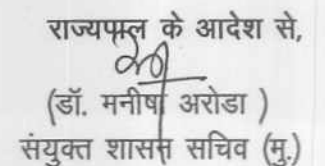 राज्यपाल के आदेश से,
(डॉ. मनीषा अरोडा )
संयुक्त शासन सचिव (मु.)